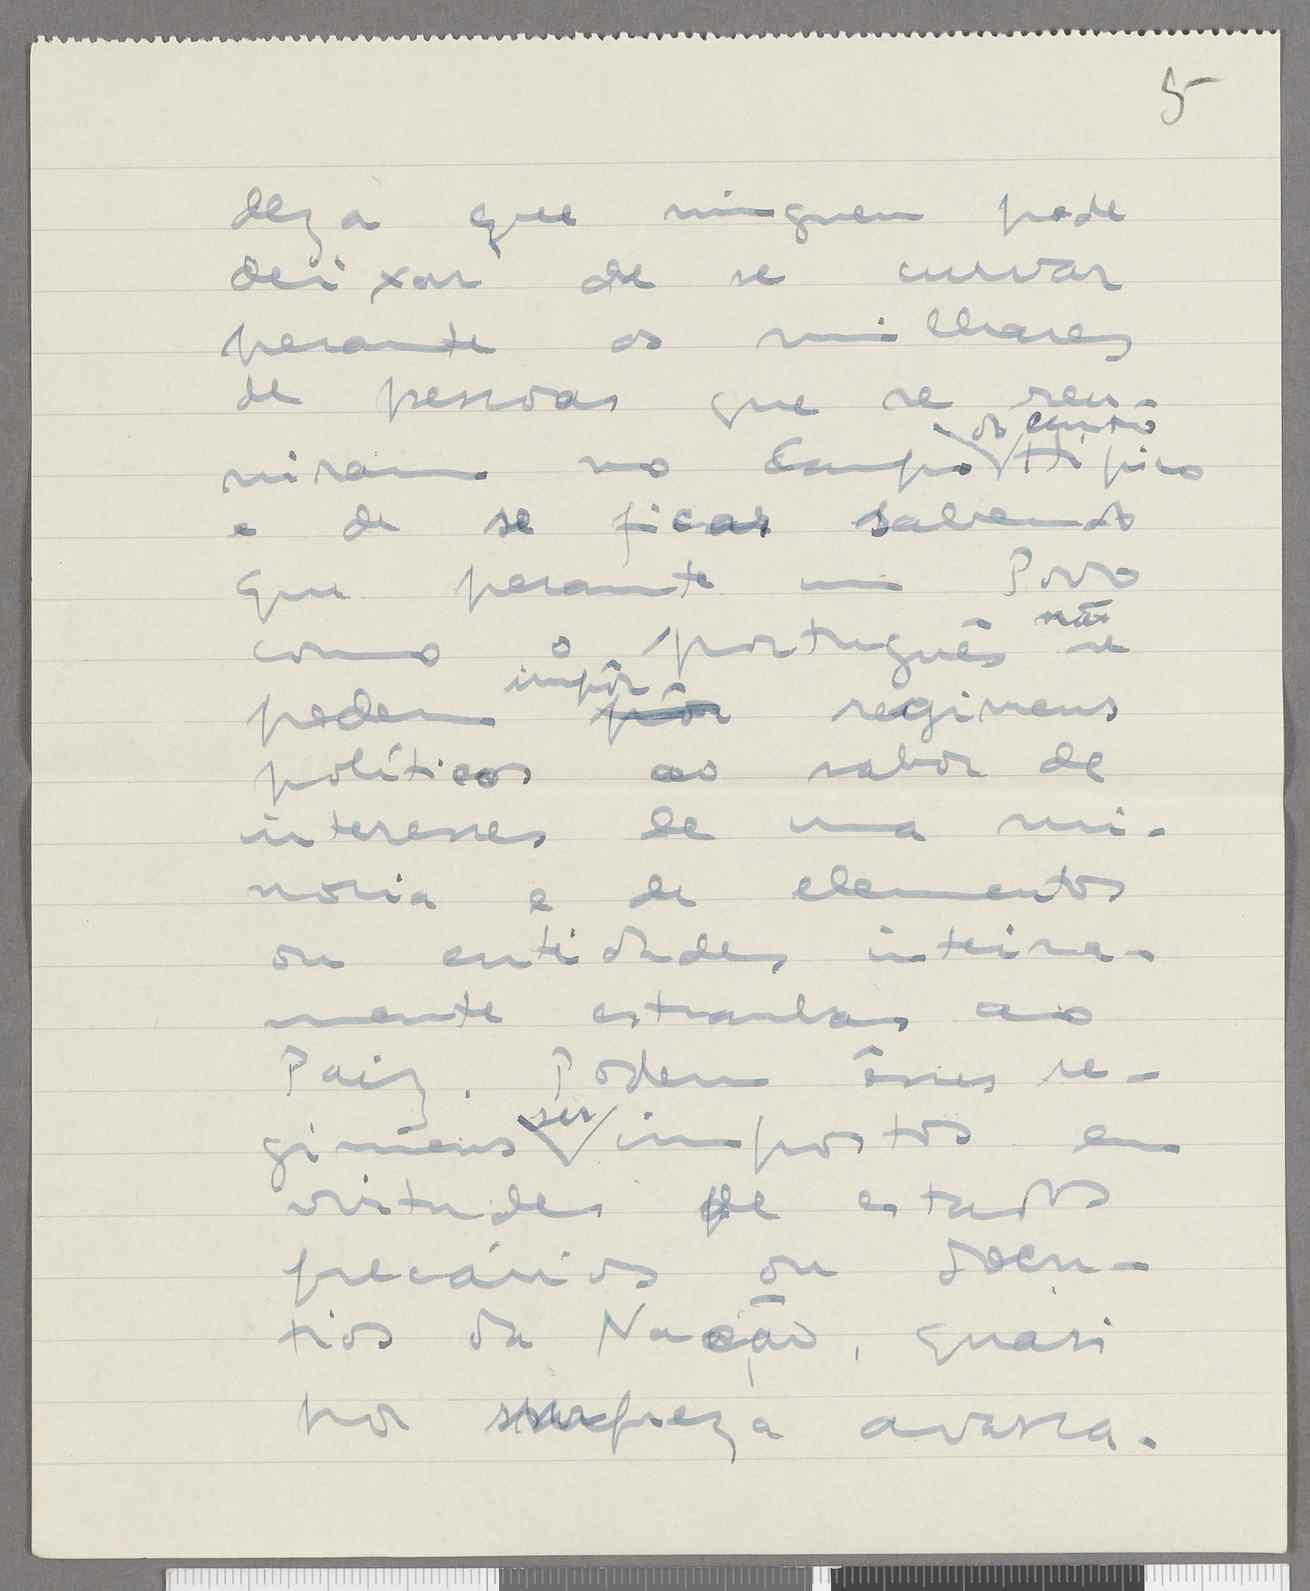 5
deza que ninguem pode
deixar de se curvar
perante os milhares
de pessoas que se reu-
do centro
niram no Campo Hípico
e de se ficar sabendo
que perante um Povo
não
como o português se
impôr
podem pôr regimens
políticos ao sabor de
interesses de uma mi-
noria e de elementos
ou entidades inteira-
mente estranhas ao
Paiz. Podem êsses re-
ser
gimens impostos em
virtudes de estados
precários ou doen-
tios da Nação, quasi
por surpreza avassa-